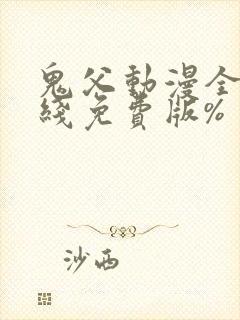 鬼父動漫全
綫免費版%
沙西